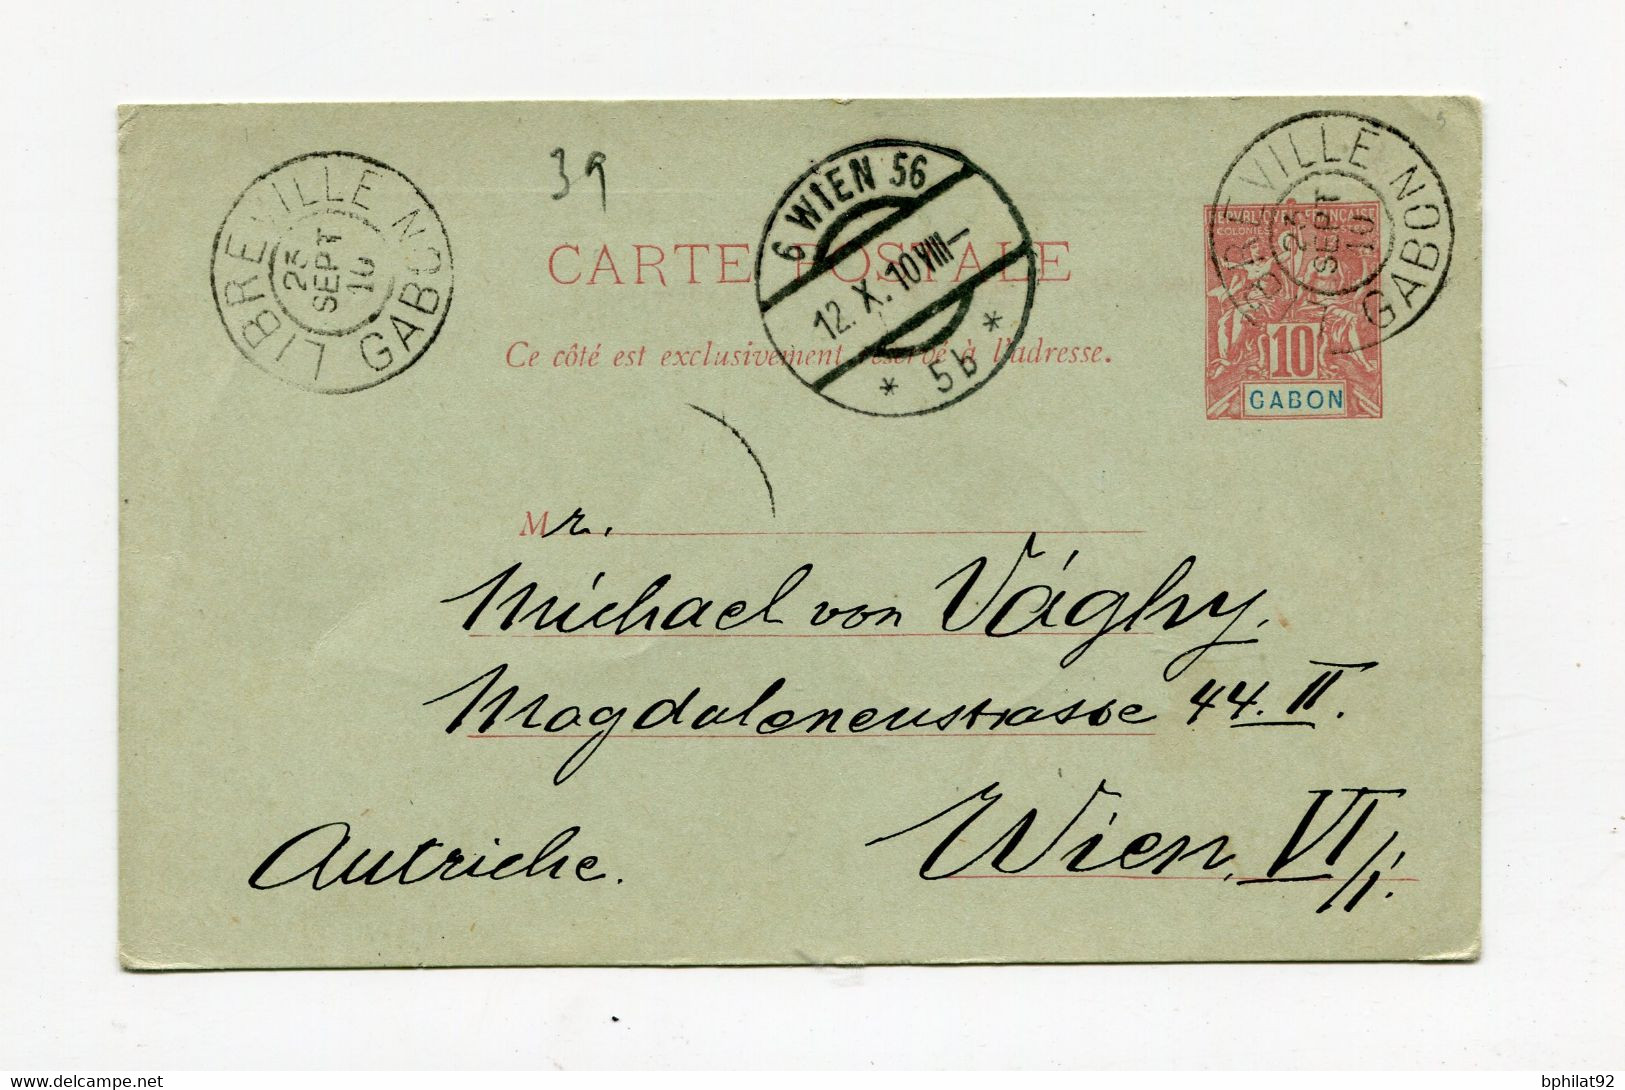 39
LIBREVILLE GABON
23
SEPT
10
6 WIEN 56
12. X. 10 VIII—
* 5b *
LIBREVILLE GABON
23
SEPT
10
REPUBLIQUE FRANÇAISE
COLONIES
10
GABON
CARTE POSTALE
Ce côté est exclusivement réservé à l'adresse.
Mr.
Michael von Vághy.
Magdalenenstrasse 44. II.
Wien, VI/1.
Autriche.
www.delcampe.net
bphilat92